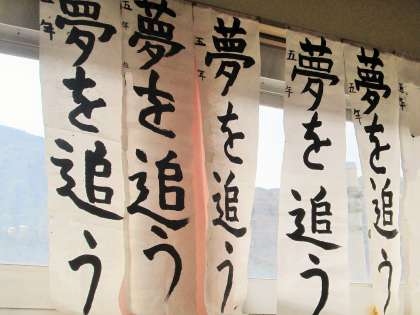 夢を追う
五年
夢を追う
五年
夢を追う
五年
夢を追う
五年
夢を追う
年